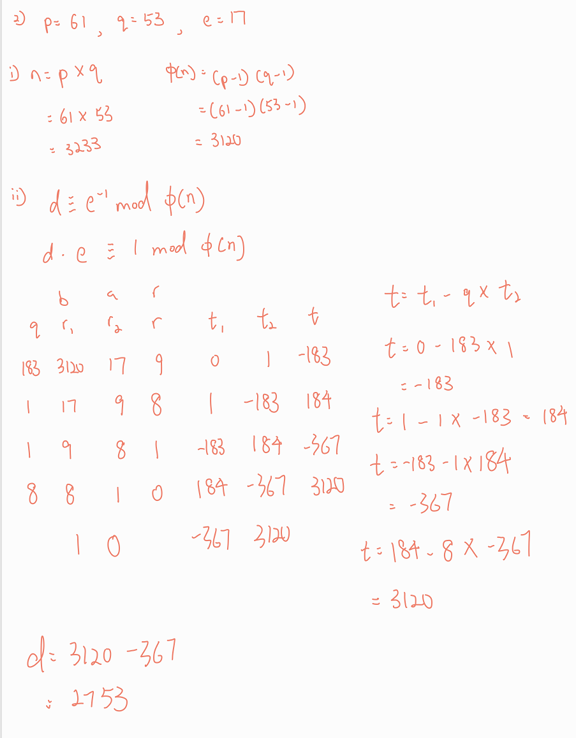 2) p= 61 , q= 53 , e= 17
i) n= p × q
= 61 × 53
= 3233
ϕ(n) = (p-1) (q-1)
= (61-1) (53-1)
= 3120
ii) d ≡ e⁻¹ mod ϕ(n)
d · e ≡ 1 mod ϕ(n)
b a r
q r₁ r₂ r t₁ t₂ t
183 3120 17 9 0 1 -183
1 17 9 8 1 -183 184
1 9 8 1 -183 184 -367
8 8 1 0 184 -367 3120
1 0 -367 3120
t= t₁ - q × t₂
t= 0 - 183 × 1
= -183
t= 1 - 1 × -183 = 184
t= -183 - 1 × 184
= -367
t= 184 - 8 × -367
= 3120
d= 3120 - 367
= 2753